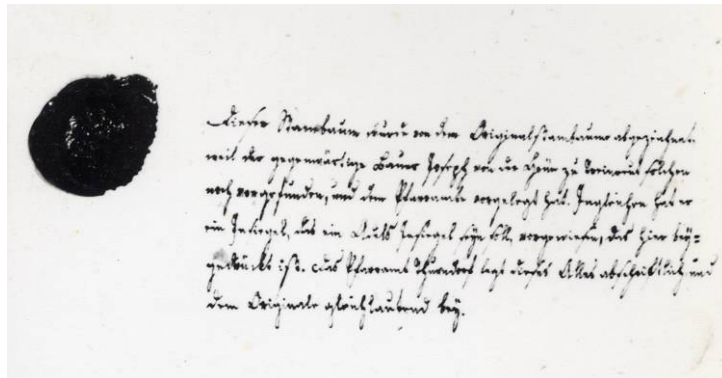 Dieser Stambaum wurde von dem Originalstambaume abgezeichnet
weil der gegenwärtige Bauer Joseph von der Grün zu solchen
noch vorgefunden, und dem Pfarramte vorgelegt hat. Ingleichen hat er
ein Insiegel, das ein Amts Insiegel seyn soll, vorgewiesen, das hier bey=
gedrückt ist. Das Pfarramt Thurndorf legt dieses Alles abschriftlich und
dem Originale gleichlautend bey.